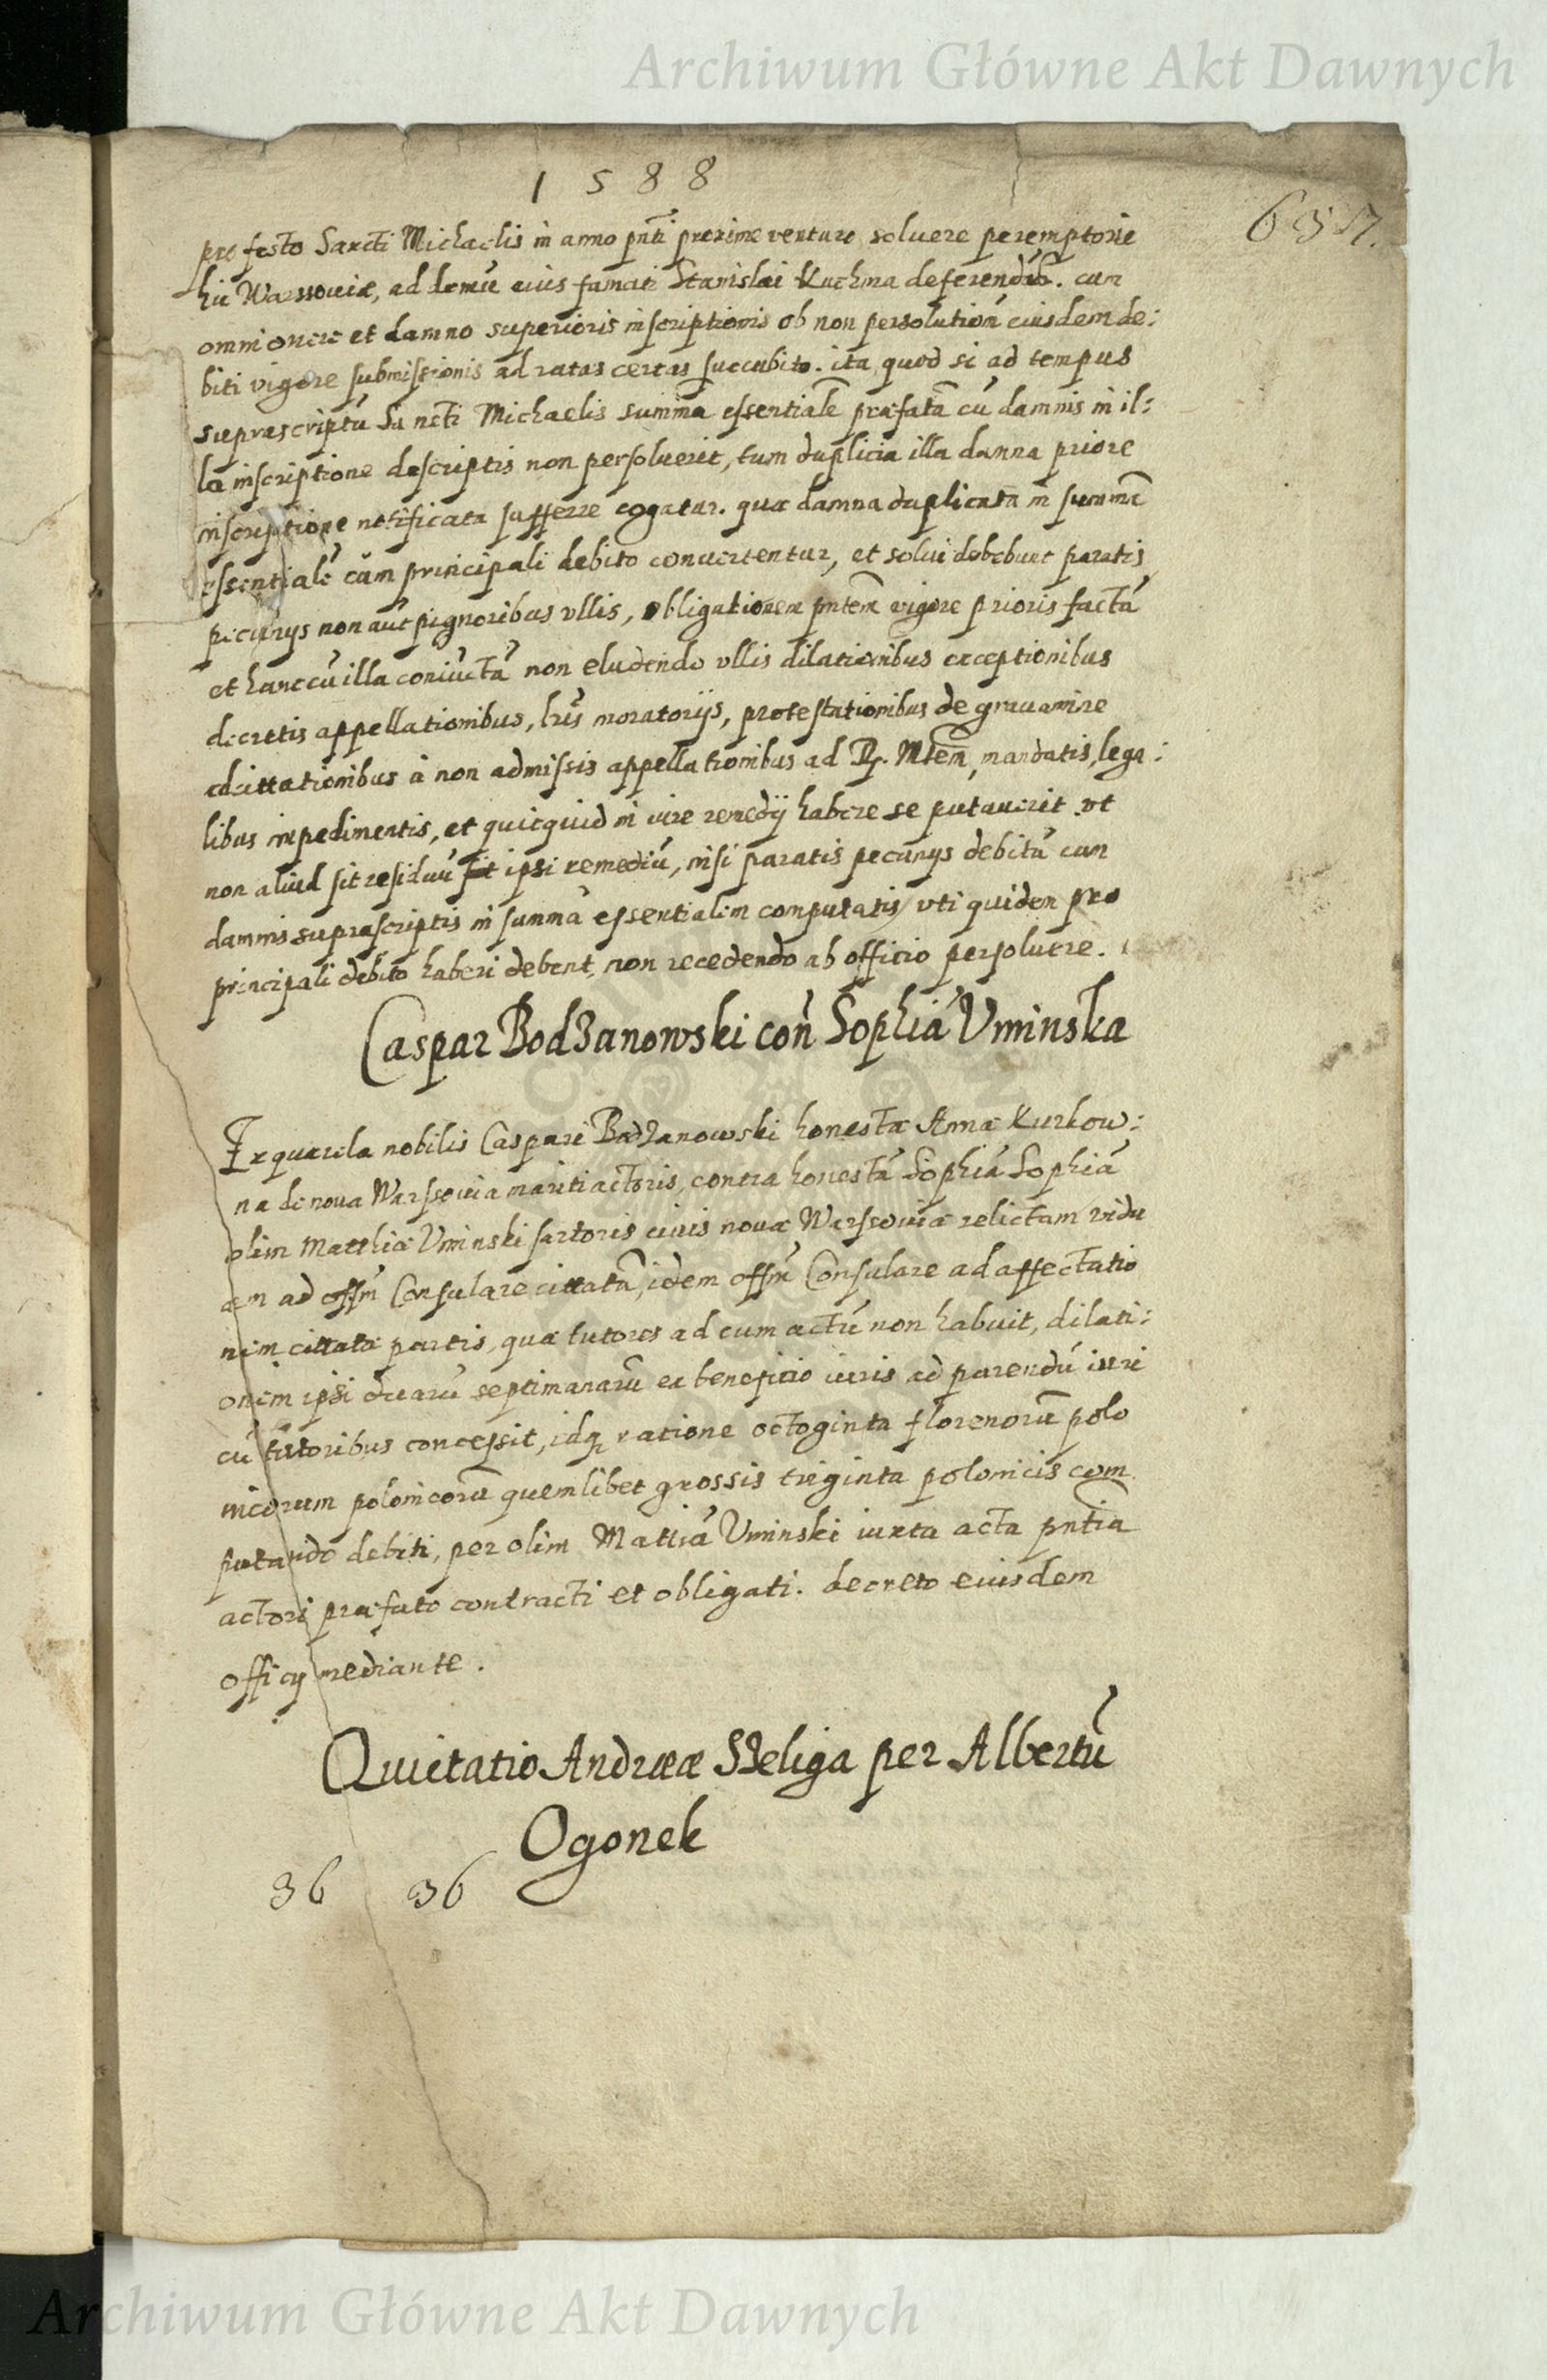 Archiwum Główne Akt Dawnych
1588
657.
pro festo Sancti Michaelis in anno pnti proxime venturo soluere peremptorie
hic Warssouiæ, ad domũ eius famati Stanislai Kuchma deferendũ. cum
omni onere et damno superioris inscriptionis ob non persolutionẽ eiusdem de:
biti vigore submissionis ad ratas certas succubito. ita quod si ad tempus
suprascriptũ Sancti Michaelis summã essentialẽ præfatã cũ damnis in il:
la inscriptione descriptis non persoluerit, tum duplicia illa damna priore
inscriptione notificata sufferre cogatur. quæ damna duplicata in summã
essentialẽ cum principali debito conuertentur, et solui debebunt paratis
pecunijs non aut pignoribus vllis, obligationem pntem vigore prioris factã
et hanc cũ illa coniũctã non eludendo vllis dilationibus exceptionibus
decretis appellationibus, lris moratorijs, protestationibus de grauamine
citationibus à non admissis appellationibus ad R. Mtem, mandatis, lega:
libus impedimentis, et quicquid in iure remedij habere se putauerit vt
non aliud sit residuũ sit ipsi remediũ, nisi paratis pecunijs debitũ cum
damnis suprascriptis in summã essentialem computatis, vti quidem pro
principali debito haberi debent, non recedendo ab officio persoluere.
Caspar Bodzanowski con Sophiã Vminska
Ex querela nobilis Caspari Bodzanowski honestæ Annæ Kurkow:
na de noua Warssouia mariti actoris, contra honestã Sophiã Sophiã
olim Matthiæ Vminski sartoris ciuis nouæ Warssouiæ relictam vidu
am ad offm Consulare citatã, idem offm Consulare ad affectatio
nem citatæ partis, quæ tutores ad eum actũ non habuit, dilati:
onem ipsi duarũ septimanarũ ex beneficio iuris ad parendũ iuri
cũ tutoribus concessit, idq ratione octoginta florenorũ polo
nicorum polonicorũ quemlibet grossis triginta polonicis com
putando debiti, per olim Mattiã Vminski iuxta acta pntia
actori præfato contracti et obligati. decreto eiusdem
officij mediante.
Quietatio Andreæ Szeliga per Albertũ
Ogonek
36 36
Archiwum Główne Akt Dawnych